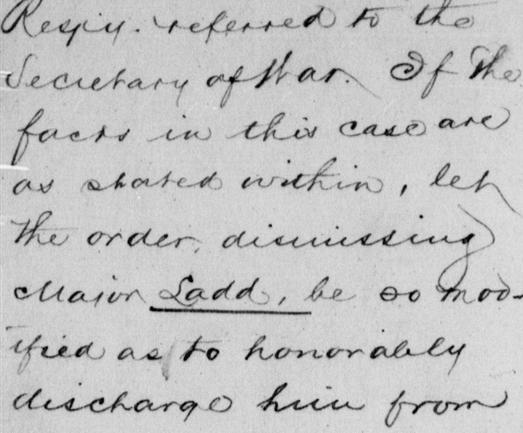 Respy. referred to the
Secretary of War. If the
facts in this case are
as stated within, let
the order, dismissing
Major Ladd, be so mod-
ified as to honorably
discharge him from